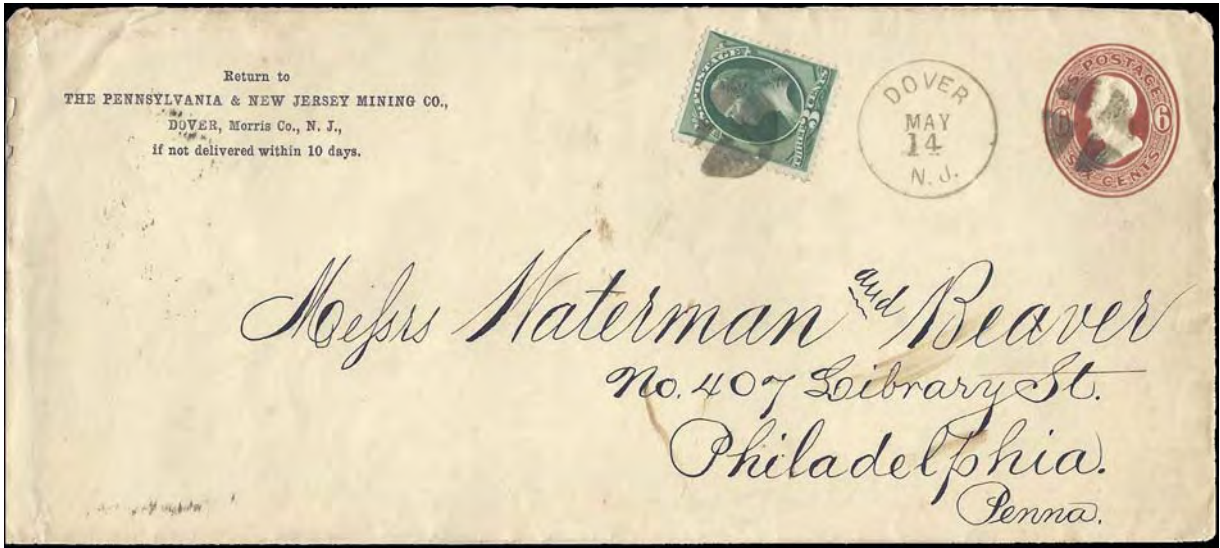 Return to
THE PENNSYLVANIA & NEW JERSEY MINING CO.,
DOVER, Morris Co., N. J.,
if not delivered within 10 days.
U.S. POSTAGE
THREE 3 CENTS
DOVER
MAY
14
N. J.
U.S. POSTAGE
6 6
SIX CENTS
Messrs Waterman and Beaver
No. 407 Library St.
Philadelphia.
Penna.